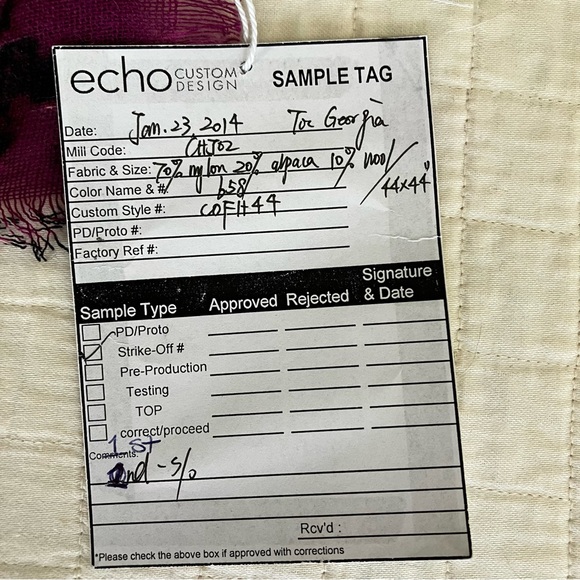 echo CUSTOM DESIGN SAMPLE TAG
Date: Jan. 23, 2014 To: Georgia
Mill Code: CHJ02
Fabric & Size: 70% nylon 20% alpaca 10% wool/ 44x44"
Color Name & #: 658
Custom Style #: COFH44
PD/Proto #:
Factory Ref #:
Sample Type Approved Rejected Signature & Date
PD/Proto
Strike-Off #
Pre-Production
Testing
TOP
correct/proceed
1st
Comments:
2nd - s/o
Rcv'd :
*Please check the above box if approved with corrections